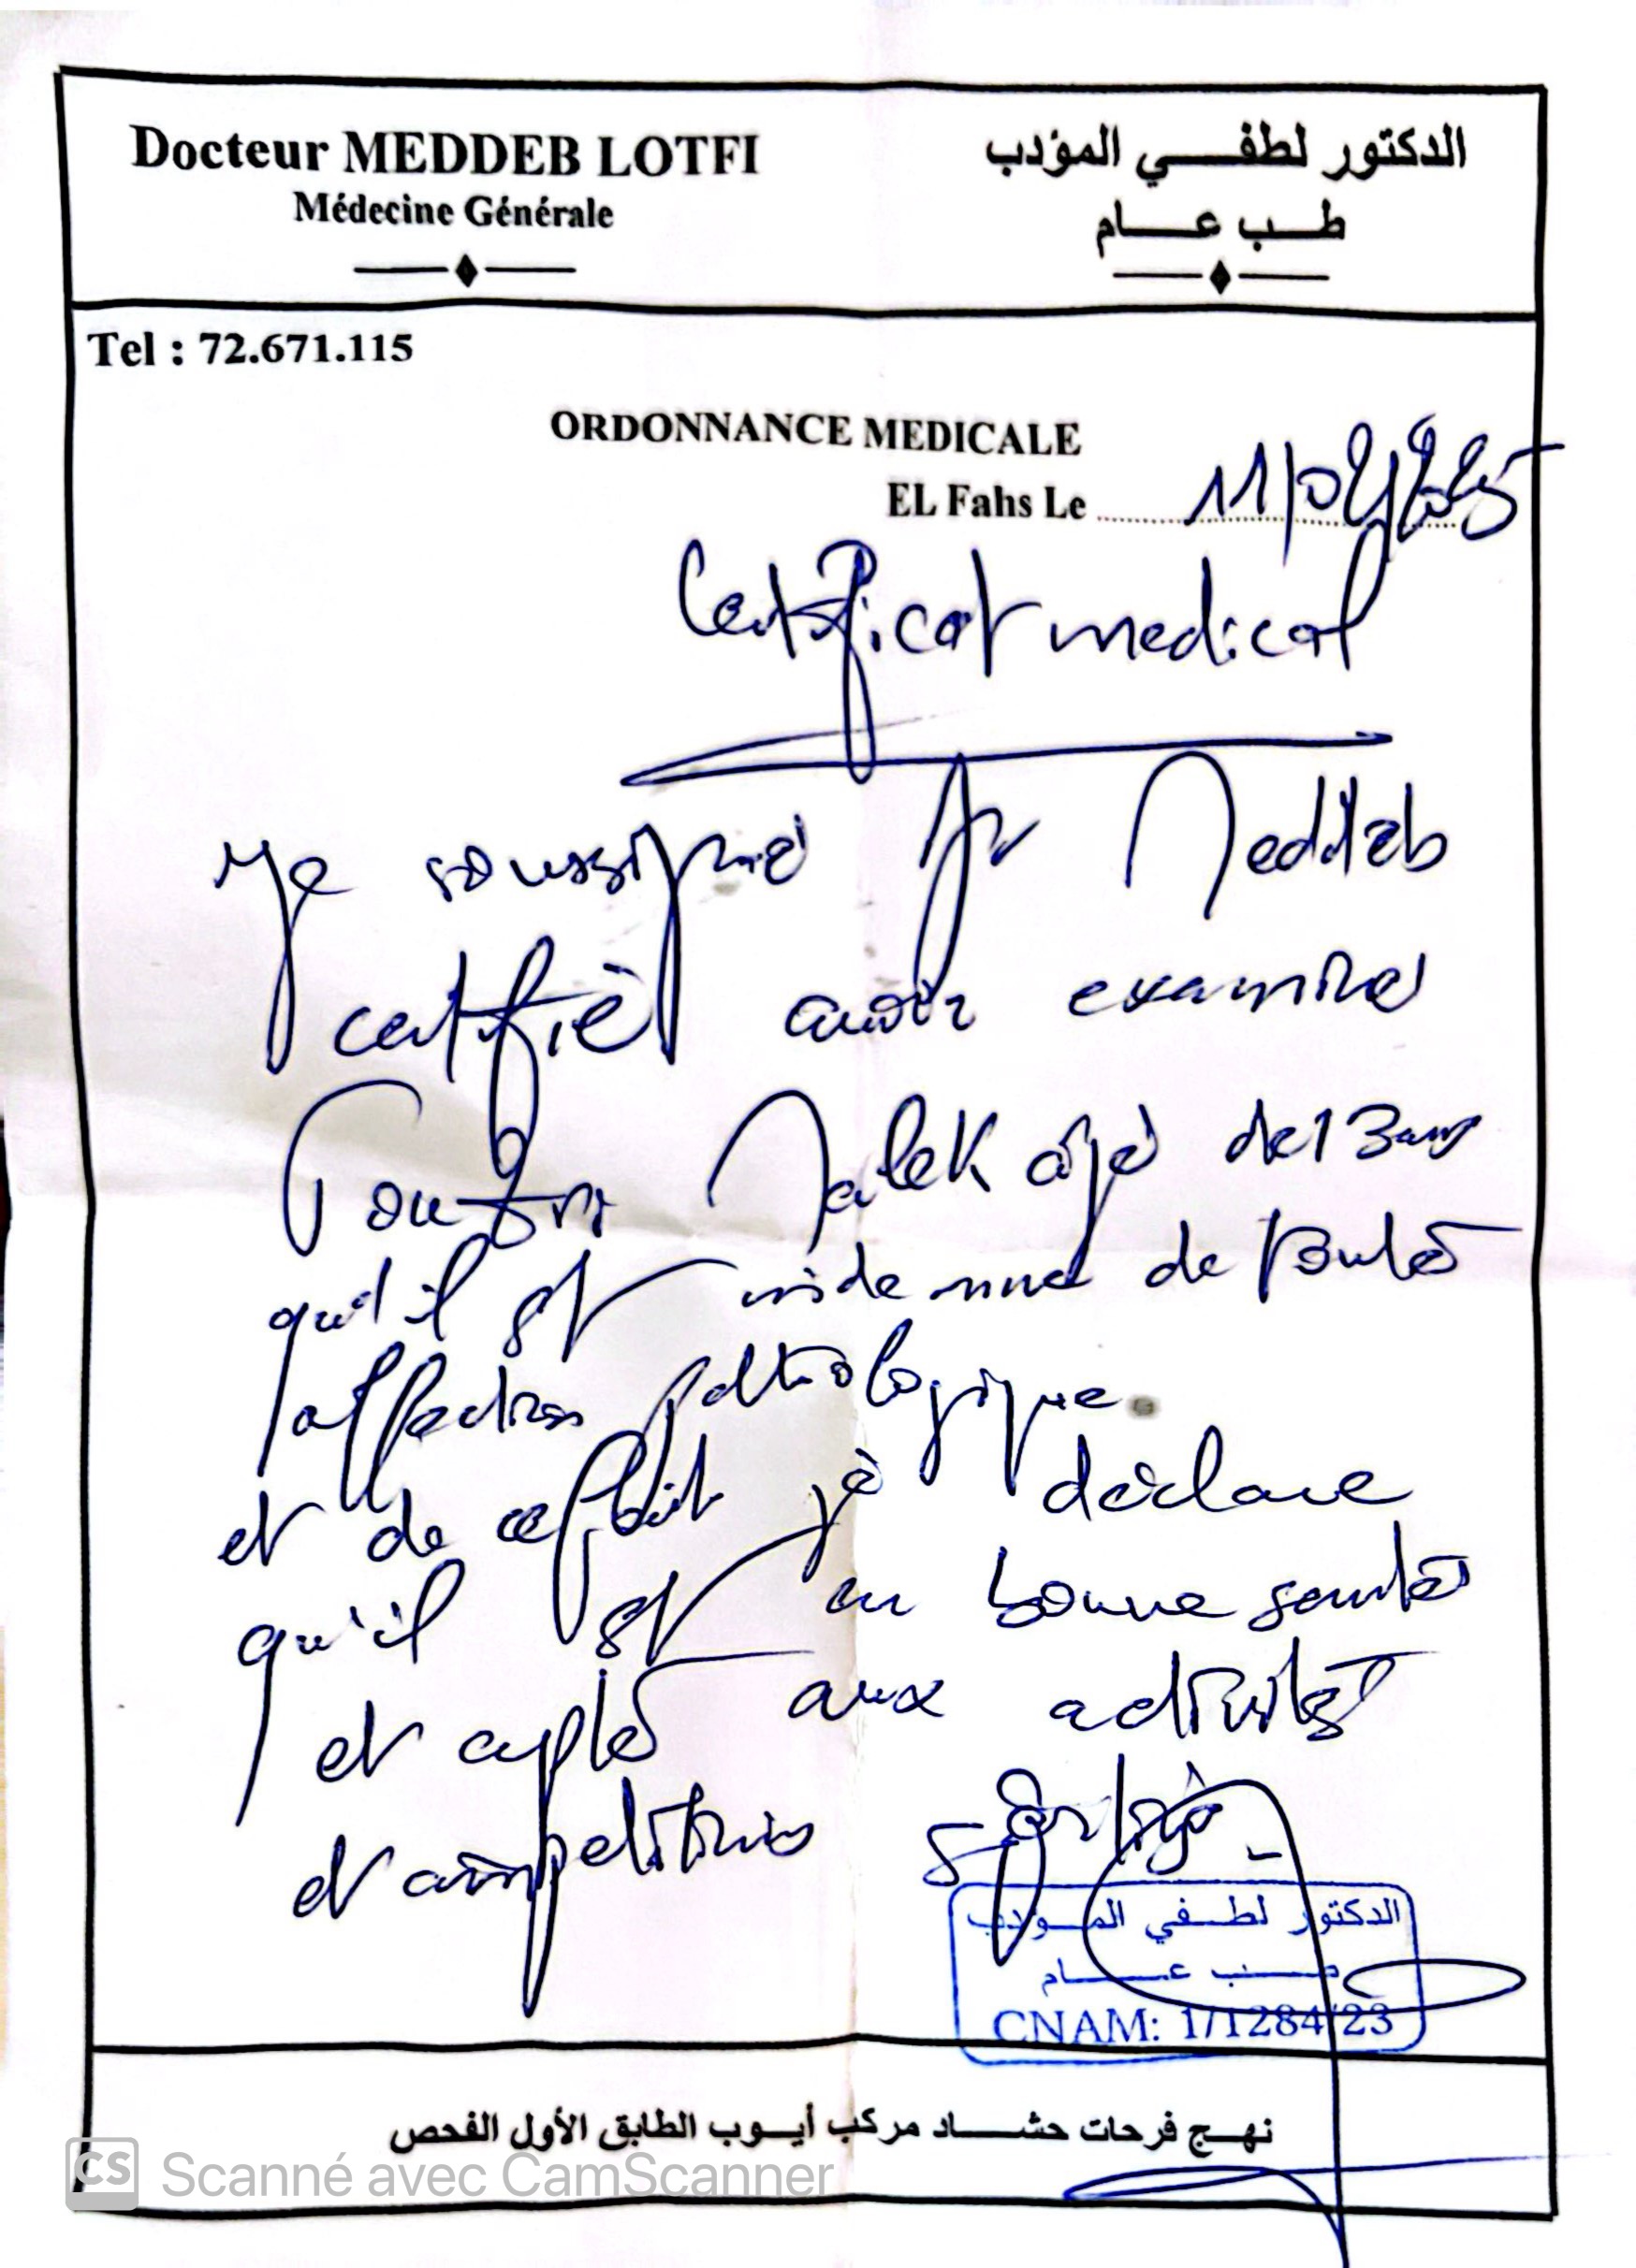 Docteur MEDDEB LOTFI
Médecine Générale
الدكتور لطفي المؤدب
طب عام
Tel : 72.671.115
ORDONNANCE MEDICALE
EL Fahs Le 11/02/2025
Certificat medical
Je soussigné Dr Meddeb
certifie avoir examiné
Malek agé de 13 ans
qu'il est indemne de toute
affection pathologique.
et de ce fait je declare
qu'il est en bonne santé
et apte aux activités
et competitions
الدكتور لطفي المؤدب
طب عام
CNAM: 1/1284/23
نهج فرحات حشاد مركب أيوب الطابق الأول الفحص
CS Scanné avec CamScanner